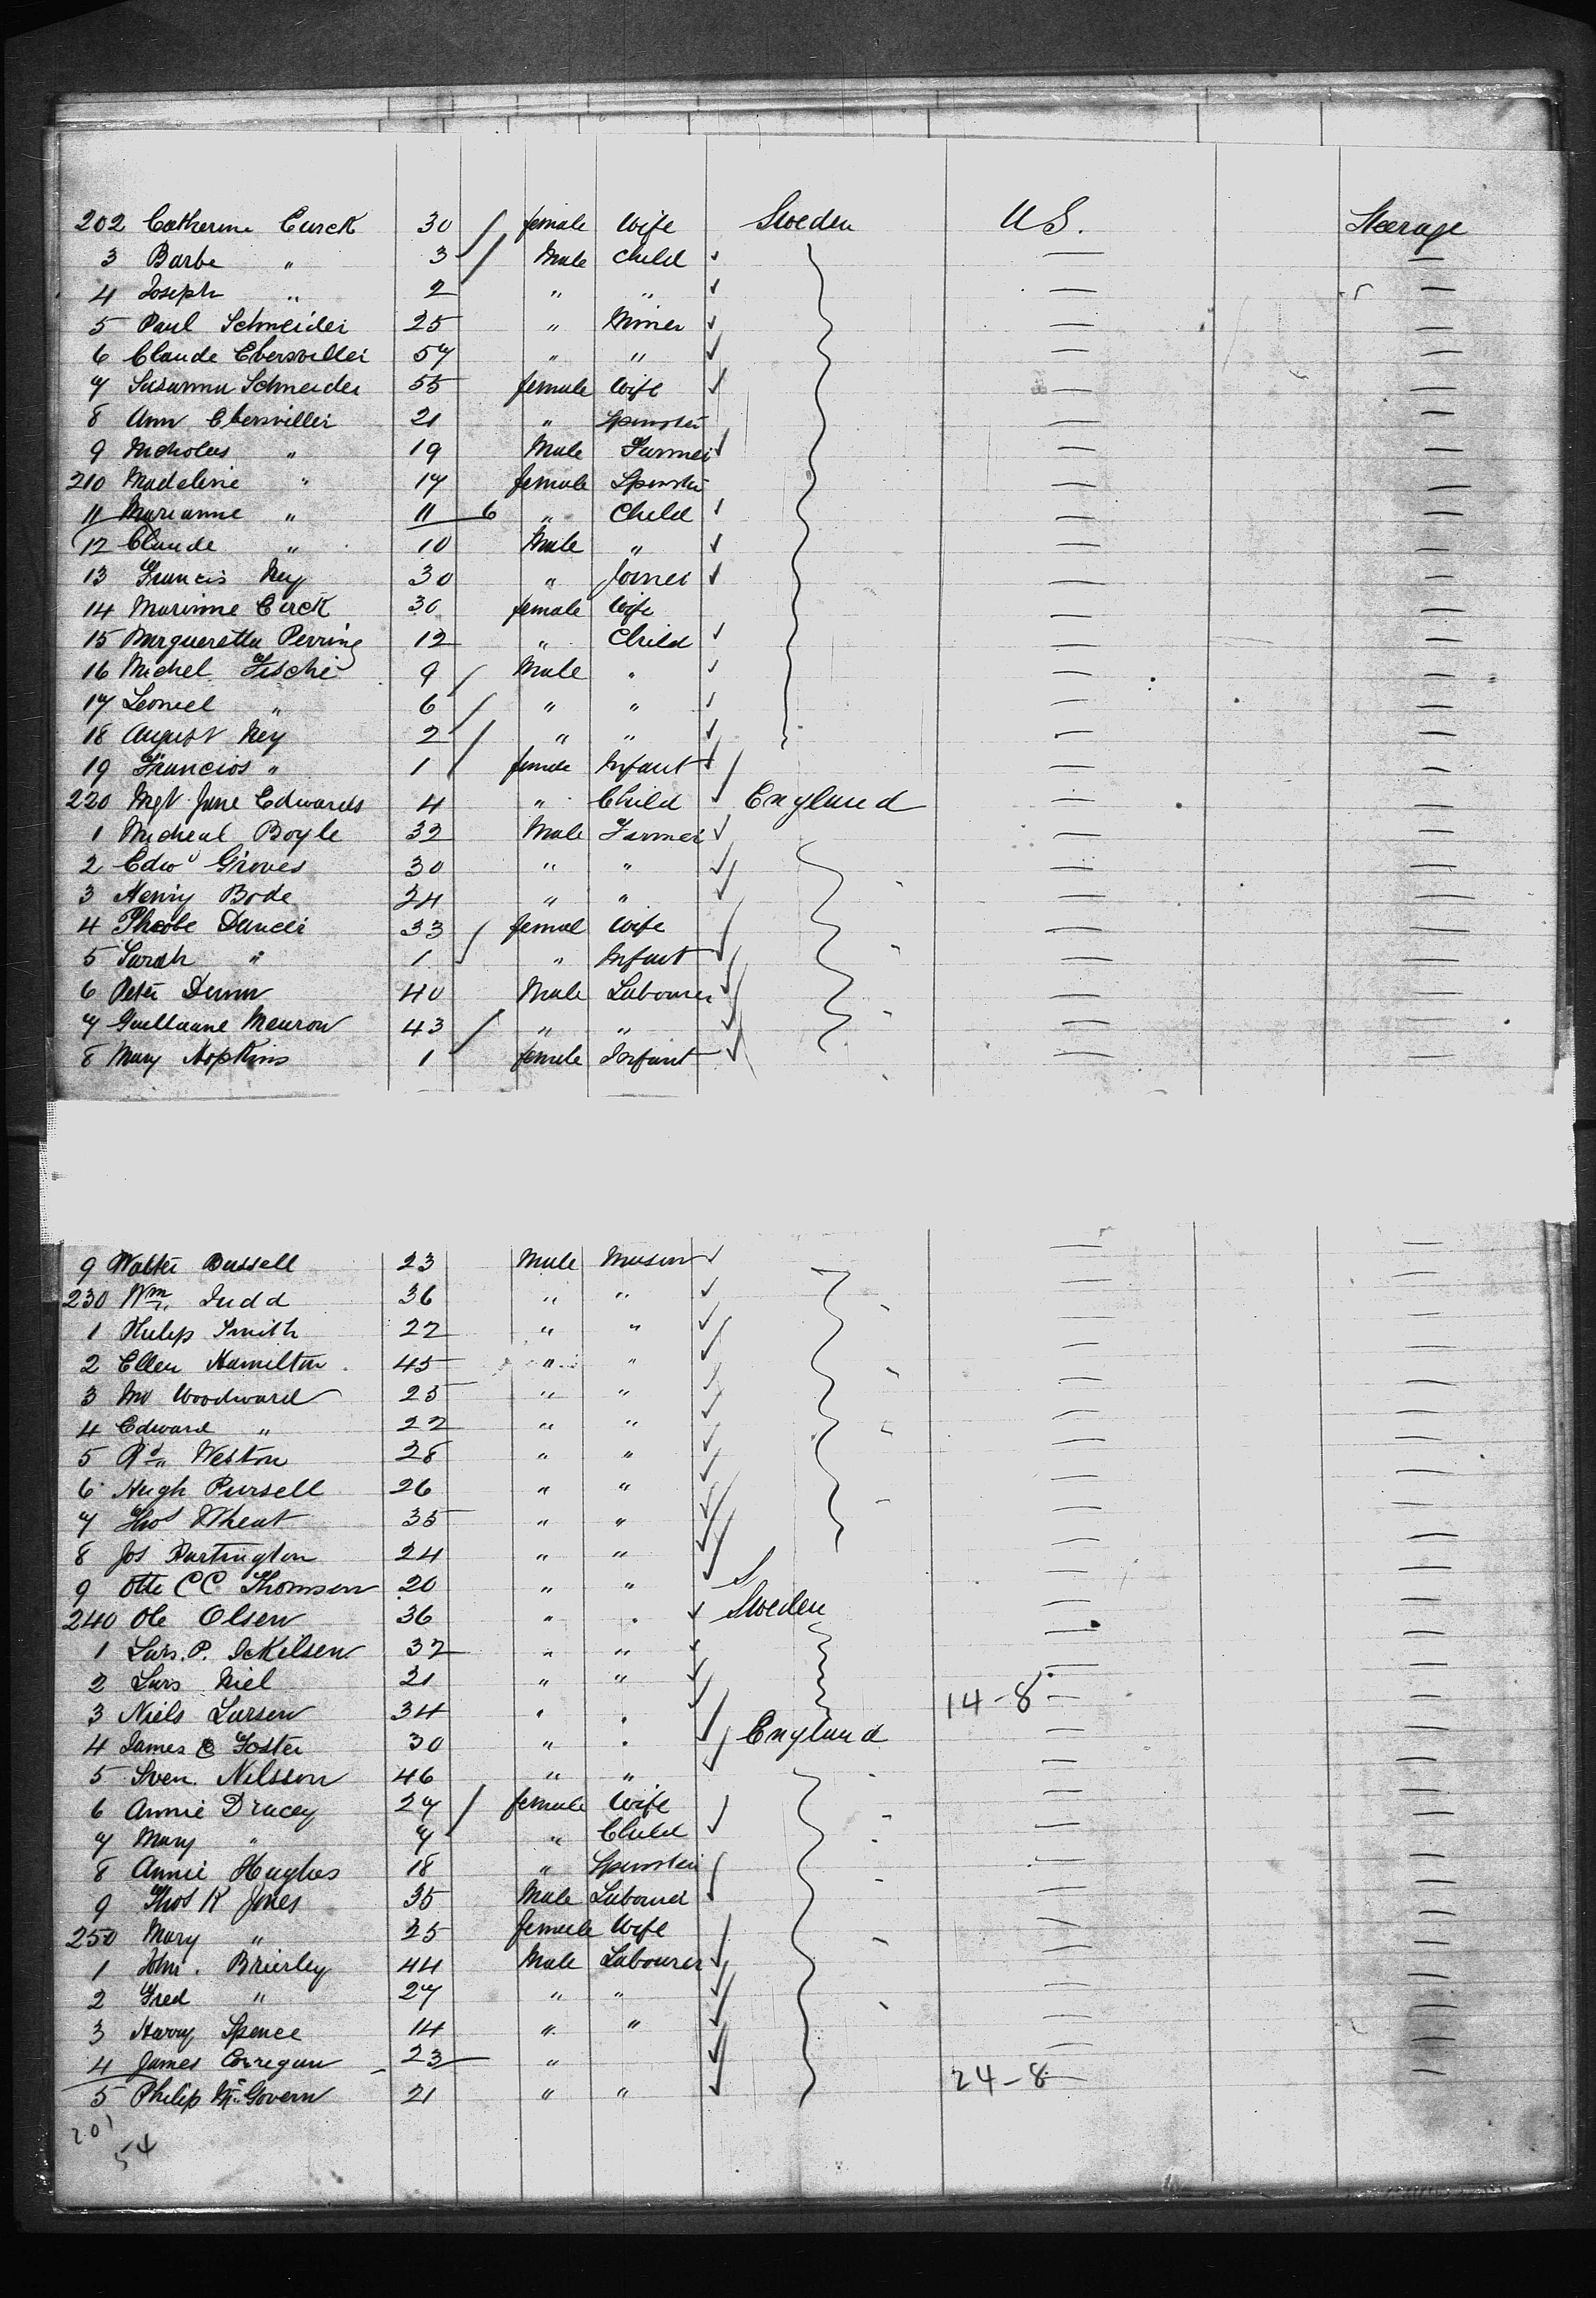 202 Catherine Curck 30 female Wife Sweden U S. Steerage
3 Barbe " 3 Male Child
4 Joseph " 2 " "
5 Paul Schneider 25 " Miner
6 Claude Ebersviller 57 " "
7 Susanna Schneider 55 female Wife
8 Ann Ebersviller 21 " Spinster
9 Nicholas " 19 Male Farmer
210 Madeline " 17 female Spinster
11 Marianne " 11 6 " Child
12 Claude " 10 Male "
13 Francis Ney 30 " Joiner
14 Marinne Curck 30 female Wife
15 Margueretta Perrine 12 " Child
16 Michel Fische 9 Male "
17 Leoniel " 6 " "
18 August Ney 2 " "
19 Francios " 1 female Infant
220 Mgt Jane Edwards 4 " Child England
1 Micheal Boyle 32 Male Farmer
2 Edwd Groves 30 " "
3 Henry Bode 24 " "
4 Phoebe Dancer 33 femal Wife
5 Sarah " 1 " Infant
6 Peter Dunn 40 Male Labourer
7 Guillaune Meuron 43 " "
8 Mary Hopkins 1 female Infant
9 Walter Bussell 23 Male Mason
230 Wm. Judd 36 " "
1 Philip Smith 22 " "
2 Ellen Hamilton 45 " "
3 Woodward 25 " "
4 Edward " 22 " "
5 Rd. Weston 28 " "
6 Hugh Pursell 26 " "
7 Thos Wheat 35 " "
8 Jos Partington 24 " "
9 Otte C C Thomsen 20 " "
240 Ole Olsen 36 " " Sweden
1 Lars. P. Ickilsen 32 " "
2 Lars Niel 21 " "
3 Niels Larsen 34 " " 14-8
4 James Foster 30 " " England
5 Sven. Nilsson 46 " "
6 Annie Dracey 27 female Wife
7 Mary " 7 " Child
8 Annie Hughes 18 " Spinster
9 Thos R Jones 35 Male Labourer
250 Mary " 25 female Wife
1 John. Brierley 44 Male Labourer
2 Fred " 27 " "
3 Harry Spence 14 " "
4 James Corregan 23 "
5 Philip McGovern 21 " " 24-8
201
54